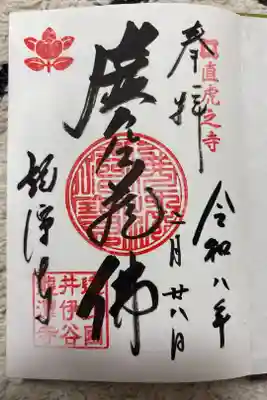 奉拝
直虎之寺
令和八年
二月廿八日
虚空蔵佛
龍潭寺
井伊谷
龍潭寺